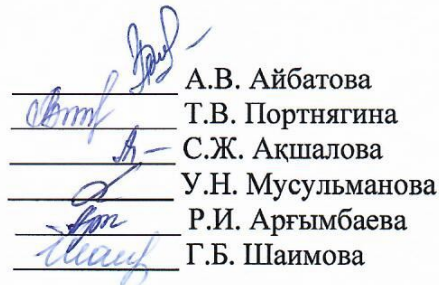 А.В. Айбатова
Т.В. Портнягина
С.Ж. Ақшалова
У.Н. Мусульманова
Р.И. Арғымбаева
Г.Б. Шаимова